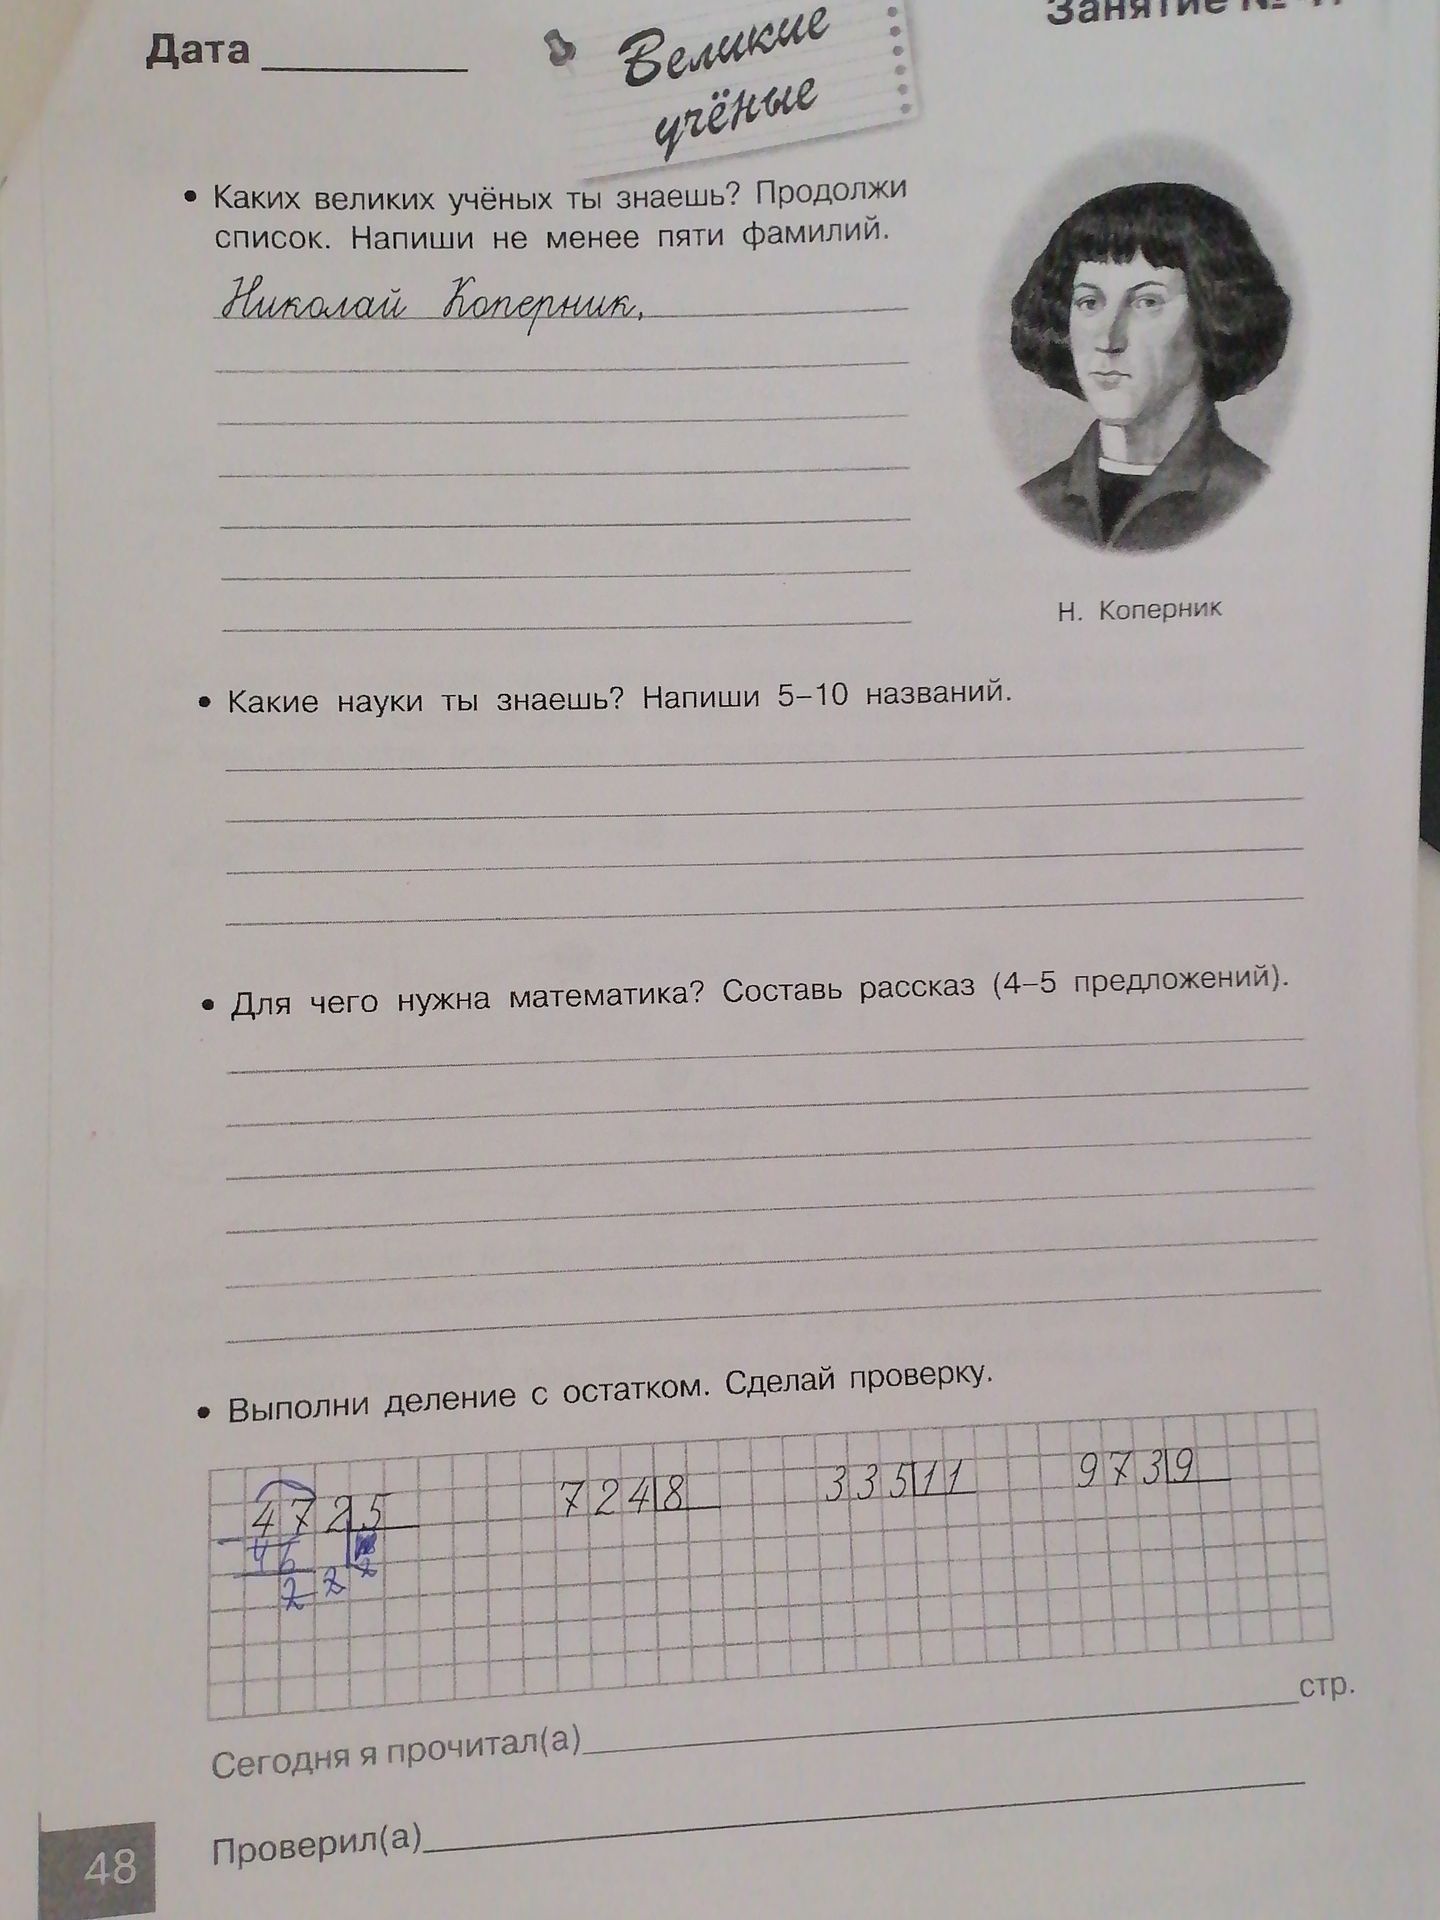 Дата
Великие
учёные
Занятие №
• Каких великих учёных ты знаешь? Продолжи
список. Напиши не менее пяти фамилий.
Николай Коперник,
Н. Коперник
• Какие науки ты знаешь? Напиши 5–10 названий.
• Для чего нужна математика? Составь рассказ (4–5 предложений).
• Выполни деление с остатком. Сделай проверку.
472|5 724|8 335|11 973|9
45
2 2 2
Сегодня я прочитал(а) стр.
Проверил(а)
48